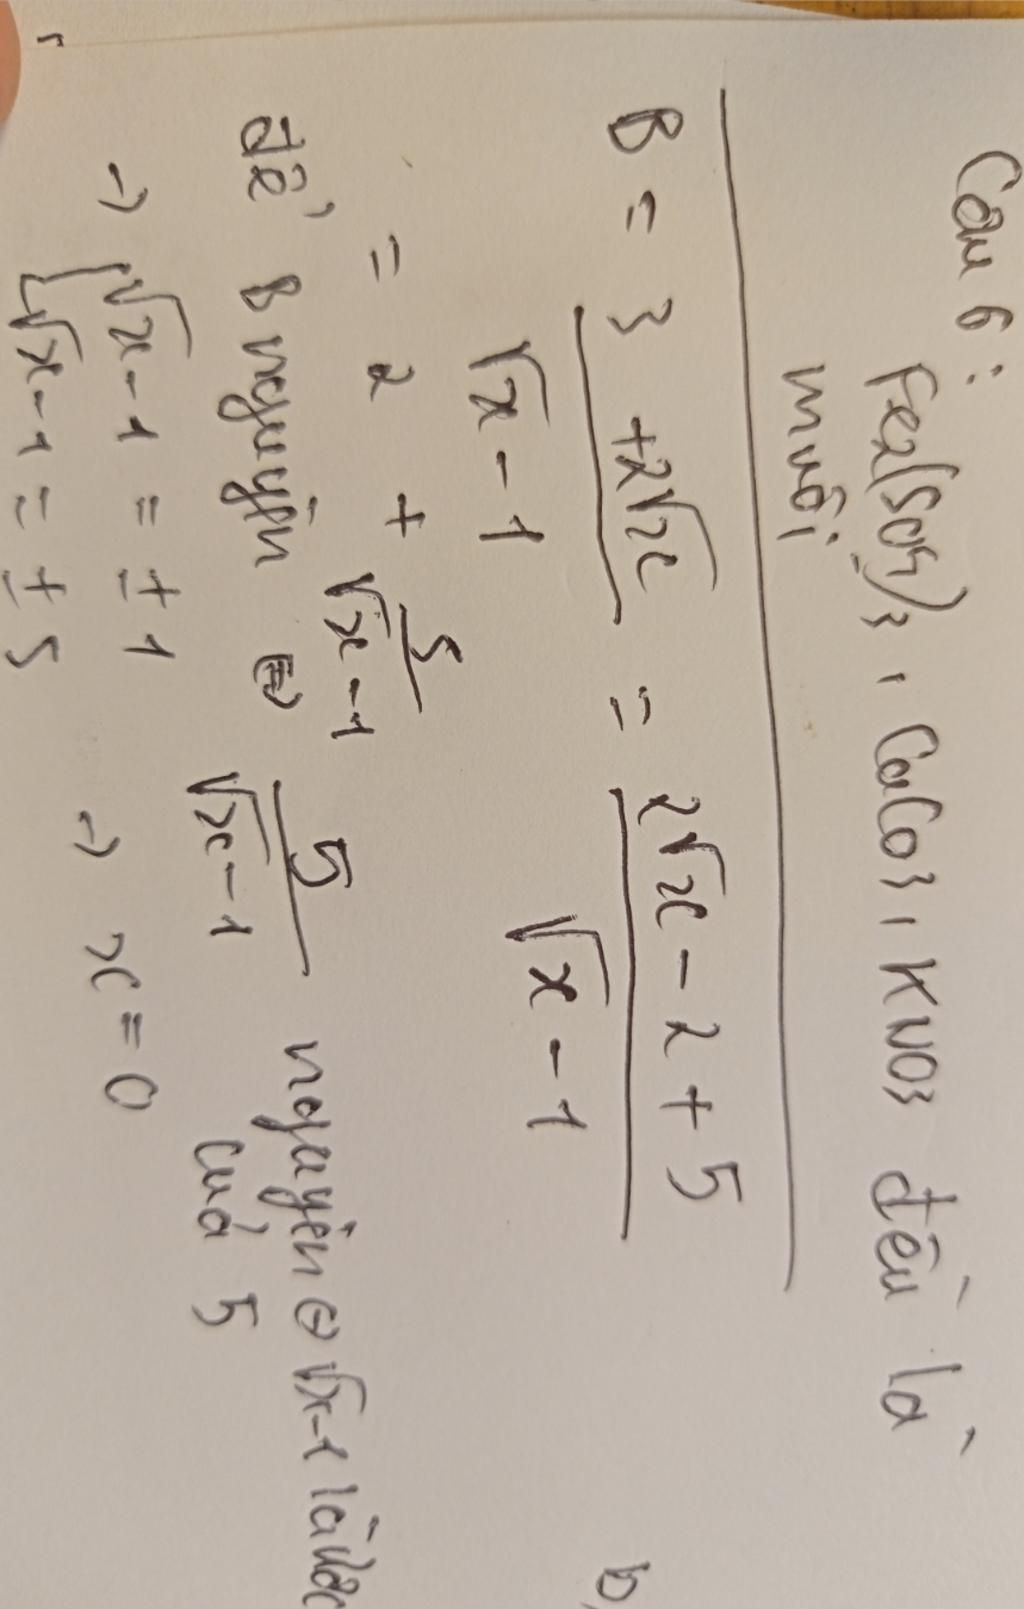 Câu 6: Fe2(SO4)3, CaCO3, KNO3 đều là
muối
B = 3 + 2√x / √x - 1 = 2√x - 2 + 5 / √x - 1
b,
= 2 + 5 / √x - 1
để B nguyên ⇔ 5 / √x - 1 nguyên ⇔ √x - 1 là ước
của 5
→ [ √x - 1 = ± 1 → x = 0
√x - 1 = ± 5